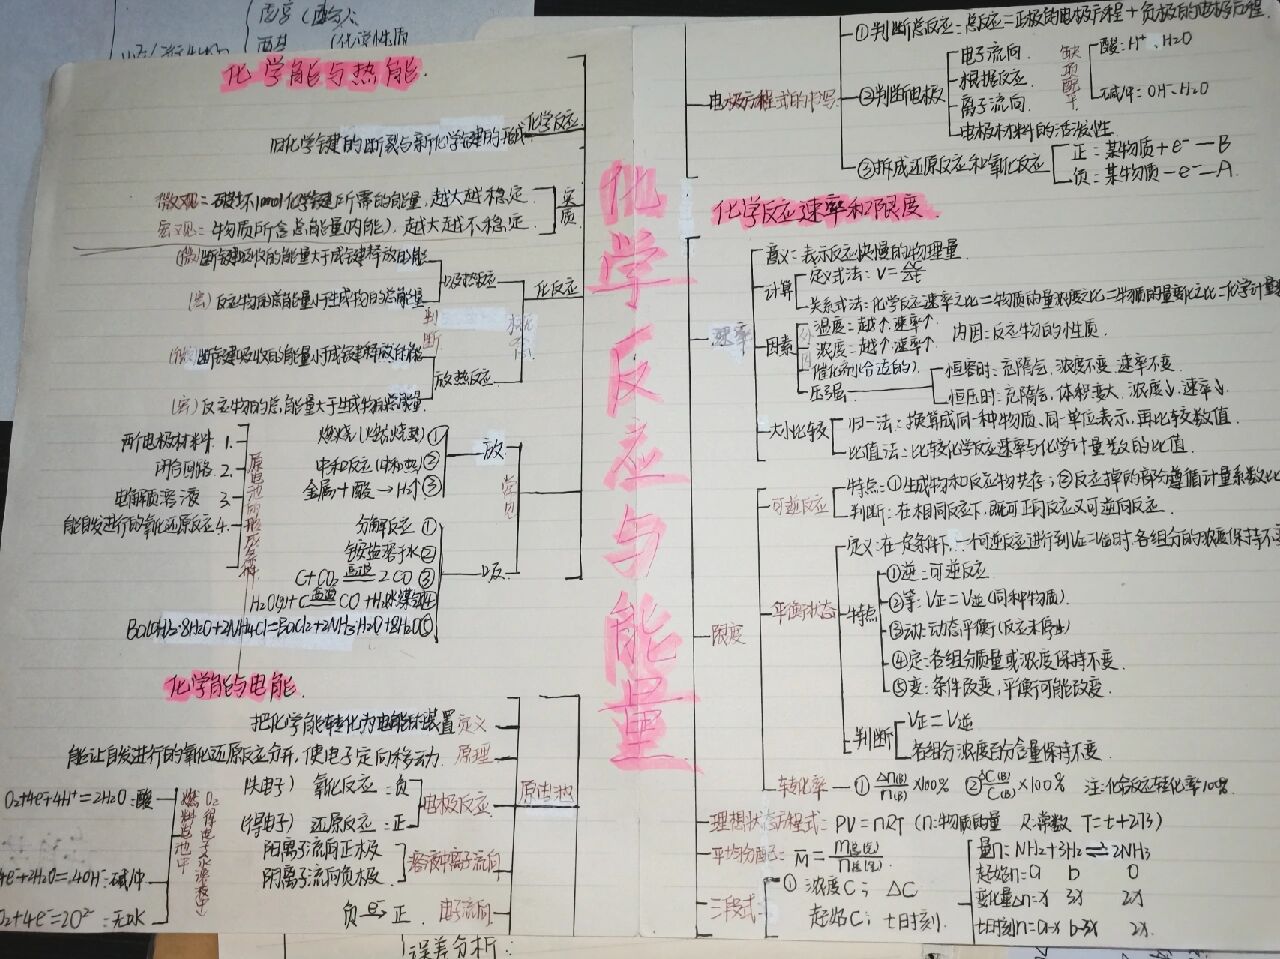 化学反应与能量
化学能与热能
化学反应
旧化学键的断裂与新化学键的形成
实质
微观：破坏1mol化学键所需的能量，越大越稳定
宏观：物质所含总能量(内能)，越大越不稳定
化反应
吸热反应
(微)断键吸收的能量大于成键释放的能
(宏)反应物的总能量小于生成物的总能量
判断
放热反应
(微)断键吸收的能量小于成键释放的能
(宏)反应物的总能量大于生成物总能量
常见
放
燃烧(火焰烧型)①
中和反应(中和热)②
金属+酸→H₂↑③
吸
分解反应①
铵盐溶于水②
C+CO₂ 高温 2CO③
H₂O(g)+C 高温 CO+H₂
Ba(OH)₂·8H₂O+2NH₄Cl=BaCl₂+2NH₃·H₂O+8H₂O⑤
原电池的形成条件
两个电极材料 1.
闭合回路 2.
电解质溶液 3.
能自发进行的氧化还原反应 4.
化学能与电能
原电池
把化学能转化为电能的装置 定义
能让自发进行的氧化还原反应分开，使电子定向移动. 原理
电极反应
(失电子) 氧化反应：负
(得电子) 还原反应：正
溶液中离子流向
阳离子流向正极
阴离子流向负极
负 e⁻→ 正. 电子流向
燃料电池中
O₂+4e⁻+4H⁺=2H₂O：酸
4e⁻+2H₂O=4OH⁻：碱/中
O₂+4e⁻=2O²⁻：无水
误差分析：
电极方程式的书写
①判断总反应：总反应=正极的电极方程+负极的电极方程
②判断电极
电子流向
根据反应
离子流向
电极材料的活泼性
缺项配平
酸：H⁺、H₂O
碱/中：OH⁻、H₂O
③拆成还原反应和氧化反应
正：某物质+e⁻—B
负：某物质-e⁻—A
化学反应速率和限度
速率
意义：表示反应快慢的物理量
计算
定义式法：V=Δc/Δt
关系式法：化学反应速率之比=物质的量浓度之比=物质的量变化之比=化学计量数
因素
外因
温度：越↑，速率↑
浓度：越↑，速率↑
催化剂(合适的)
压强
内因：反应物的性质
恒容时：充惰气，浓度不变，速率不变
恒压时：充惰气，体积变大，浓度↓，速率↓
大小比较
归一法：换算成同一种物质、同一单位表示，再比较数值
比值法：比较化学反应速率与化学计量数的比值
限度
可逆反应
特点：①生成物和反应物共存；②反应掉的部分遵循计量系数之比
判断：在相同反应下，既可正向反应又可逆向反应
平衡状态
定义：在一定条件下，一个可逆反应进行到V正=V逆时，各组分的浓度保持不变
特点
①逆：可逆反应
②等：V正=V逆(同种物质)
③动：动态平衡(反应未停止)
④定：各组分质量或浓度保持不变
⑤变：条件改变，平衡可能改变
判断
V正=V逆
各组分浓度百分含量保持不变
转化率 ①Δn(B)/n(B)×100% ②ΔC(B)/C(B)×100% 注：化合反应转化率100%
理想状态方程式：PV=nRT (n：物质的量 R：常数 T=t+273)
平均分配：M̄=m总(g)/n总(g)
三段式
①浓度C；ΔC
起始C；t时刻
量n：N₂+3H₂⇌2NH₃
起始n=a b 0
变化量Δn=x 3x 2x
t时刻n=a-x b-3x 2x